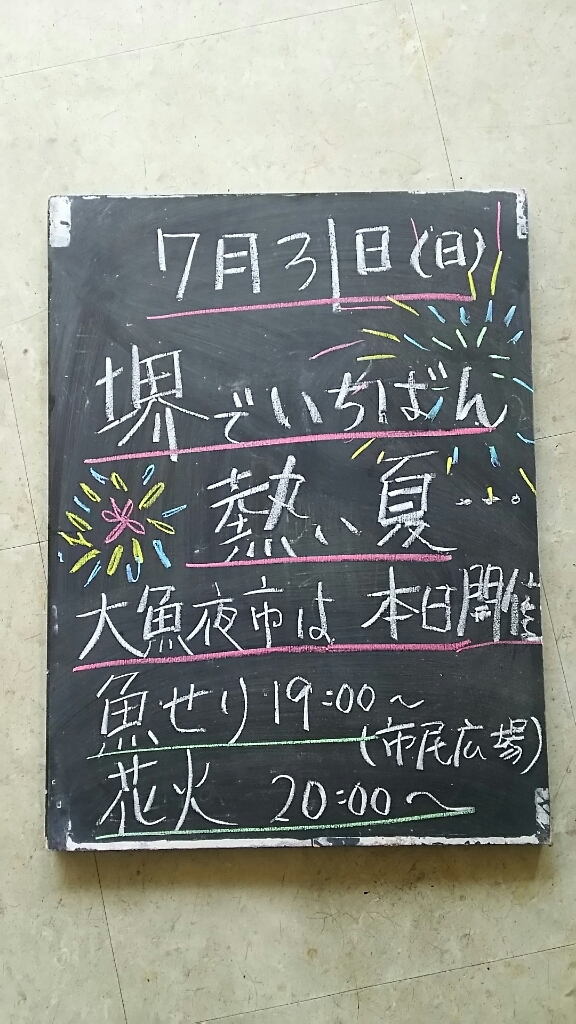 7月31日(日)
堺でいちばん
熱い夏...
大魚夜市は 本日開催
魚せり 19:00～
(市尾広場)
花火 20:00～